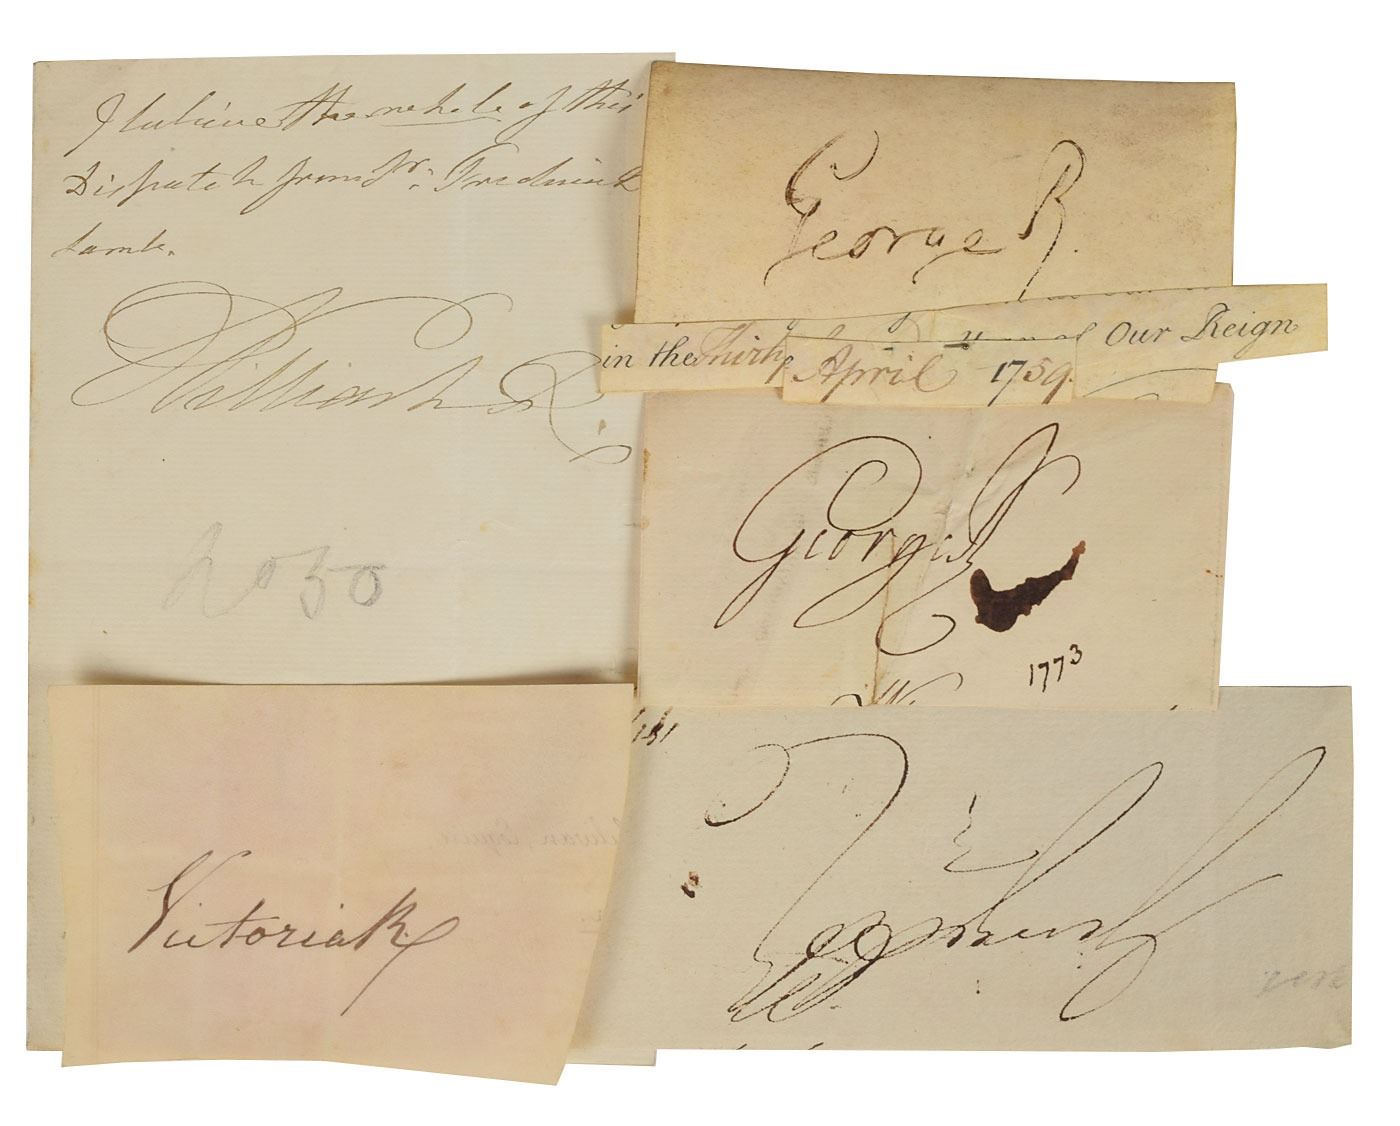 I believe the whole of this
Dispatch from Sr. Frederick
Lamb.
William R.
No 50
George R.
in the Thirty
Our Reign
April 1759.
George R
1773
Victoria R